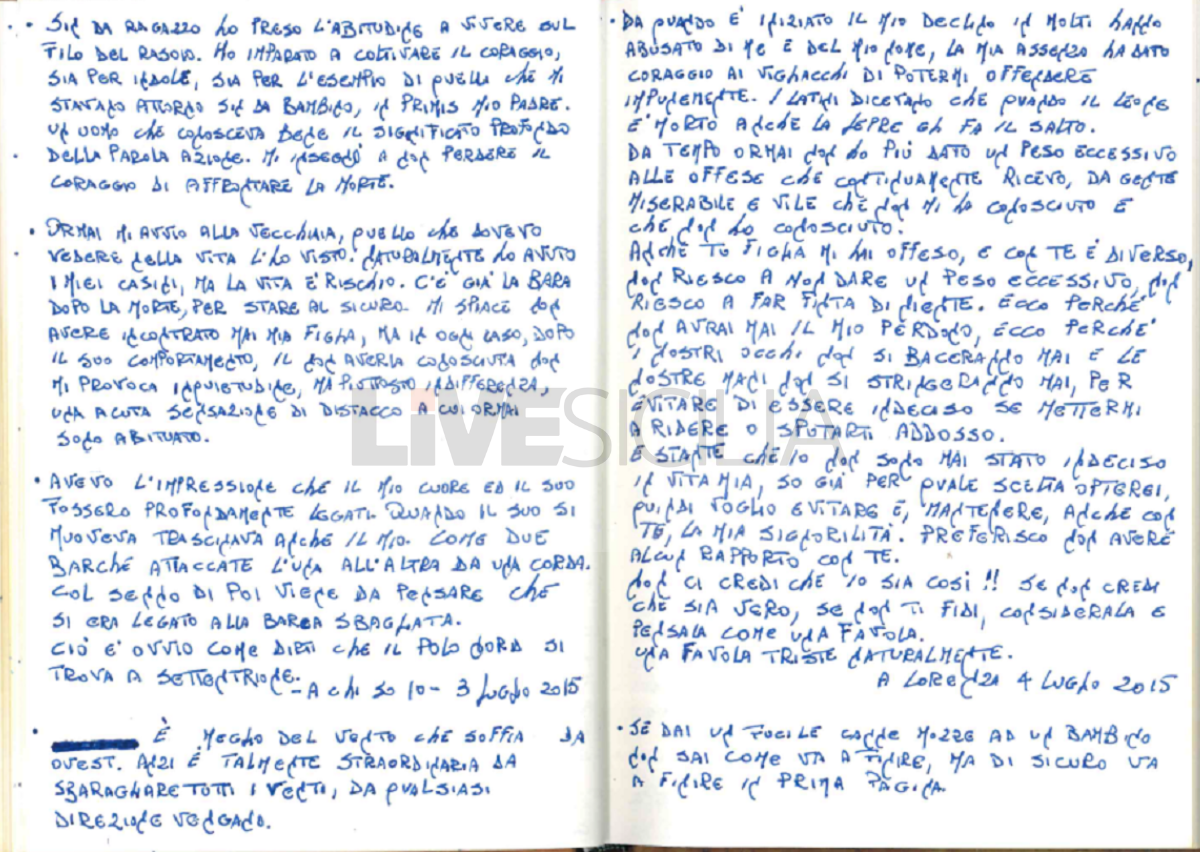 • SIN DA RAGAZZO HO PRESO L'ABITUDINE A VIVERE SUL
FILO DEL RASOIO. HO IMPARATO A COLTIVARE IL CORAGGIO,
SIA PER INDOLE, SIA PER L'ESEMPIO DI QUELLI CHE MI
STAVANO ATTORNO SIN DA BAMBINO, IN PRIMIS MIO PADRE.
UN UOMO CHE CONOSCEVA BENE IL SIGNIFICATO PROFONDO
DELLA PAROLA AZIONE. MI INSEGNÒ A NON PERDERE IL
CORAGGIO DI AFFRONTARE LA MORTE.
• ORMAI MI AVVIO ALLA VECCHIAIA, QUELLO CHE DOVEVO
VEDERE NELLA VITA L'HO VISTO. NATURALMENTE HO AVUTO
I MIEI CASINI, MA LA VITA È RISCHIO. C'È GIÀ LA BARA
DOPO LA MORTE, PER STARE AL SICURO. MI SPIACE NON
AVERE INCONTRATO MAI MIA FIGLIA, MA IN OGNI CASO, DOPO
IL SUO COMPORTAMENTO, IL NON AVERLA CONOSCIUTA NON
MI PROVOCA INQUIETUDINE, MA PIUTTOSTO INDIFFERENZA,
UNA ACUTA SENSAZIONE DI DISTACCO A CUI ORMAI
SONO ABITUATO.
• AVEVO L'IMPRESSIONE CHE IL MIO CUORE ED IL SUO
FOSSERO PROFONDAMENTE LEGATI. QUANDO IL SUO SI
MUOVEVA TRASCINAVA ANCHE IL MIO. COME DUE
BARCHE ATTACCATE L'UNA ALL'ALTRA DA UNA CORDA.
COL SENNO DI POI VIENE DA PENSARE CHE
SI ERA LEGATO ALLA BARCA SBAGLIATA.
CIÒ È OVVIO COME DIRTI CHE IL POLO NORD SI
TROVA A SETTENTRIONE.
- A CHI SO IO - 3 LUGLIO 2015
• È MEGLIO DEL VENTO CHE SOFFIA DA
OVEST. ANZI È TALMENTE STRAORDINARIA DA
SBARAGLIARE TUTTI I VENTI, DA QUALSIASI
DIREZIONE VENGANO.
• DA QUANDO È INIZIATO IL MIO DECLINO IN MOLTI HANNO
ABUSATO DI ME E DEL MIO NOME, LA MIA ASSENZA HA DATO
CORAGGIO AI VIGLIACCHI DI POTERMI OFFENDERE
IMPUNEMENTE. I LATINI DICEVANO CHE QUANDO IL LEONE
È MORTO ANCHE LA LEPRE GLI FA IL SALTO.
DA TEMPO ORMAI NON HO PIÙ DATO UN PESO ECCESSIVO
ALLE OFFESE CHE CONTINUAMENTE RICEVO, DA GENTE
MISERABILE E VILE CHE NON MI HA CONOSCIUTO E
CHE NON HO CONOSCIUTO.
ANCHE TU FIGLIA MI HAI OFFESO, E CON TE È DIVERSO,
NON RIESCO A NON DARE UN PESO ECCESSIVO, NON
RIESCO A FAR FINTA DI NIENTE. ECCO PERCHÉ
NON AVRAI MAI IL MIO PERDONO, ECCO PERCHÉ
I NOSTRI OCCHI NON SI BACERANNO MAI E LE
NOSTRE MANI NON SI STRINGERANNO MAI, PER
EVITARE DI ESSERE INDECISO SE METTERMI
A RIDERE O SPUTARTI ADDOSSO.
E STANTE CHE IO NON SONO MAI STATO INDECISO
IN VITA MIA, SO GIÀ PER QUALE SCELTA OPTEREI,
QUINDI VOGLIO EVITARE E, MANTENERE, ANCHE CON
TE, LA MIA SIGNORILITÀ. PREFERISCO NON AVERE
ALCUN RAPPORTO CON TE.
NON CI CREDI CHE IO SIA COSÌ!! SE NON CREDI
CHE SIA VERO, SE NON TI FIDI, CONSIDERALA E
PENSALA COME UNA FAVOLA.
UNA FAVOLA TRISTE NATURALMENTE.
A LORENZA 4 LUGLIO 2015
• SE DAI UN FUCILE CANNE MOZZE AD UN BAMBINO
NON SAI COME VA A FINIRE, MA DI SICURO VA
A FINIRE IN PRIMA PAGINA.
LIVESICILIA